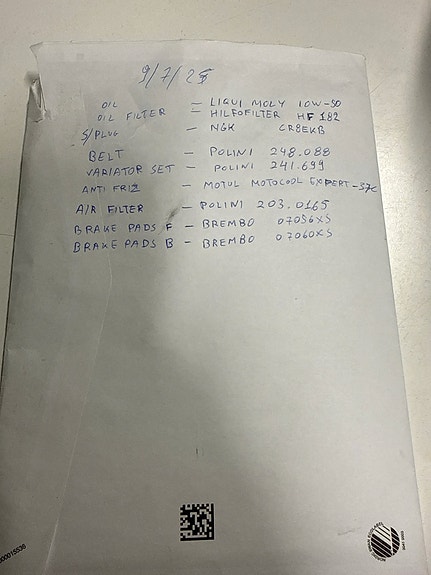 9/7/25
OIL = LIQUI MOLY 10W-50
OIL FILTER = HILFOFILTER HF 182
S/PLUG - NGK CR8EKB
BELT - POLINI 248.088
VARIATOR SET - POLINI 241.699
ANTI FRIZ - MOTUL MOTOCOOL EXPERT -37C
AIR FILTER - POLINI 203.0165
BRAKE PADS F - BREMBO 07056XS
BRAKE PADS B - BREMBO 07060XS
000015536